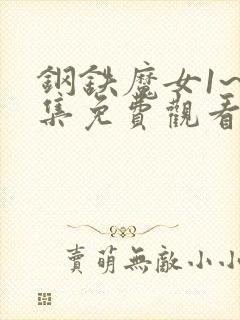 鋼鉄魔女1~
集免費觀看
賣萌無敵小小